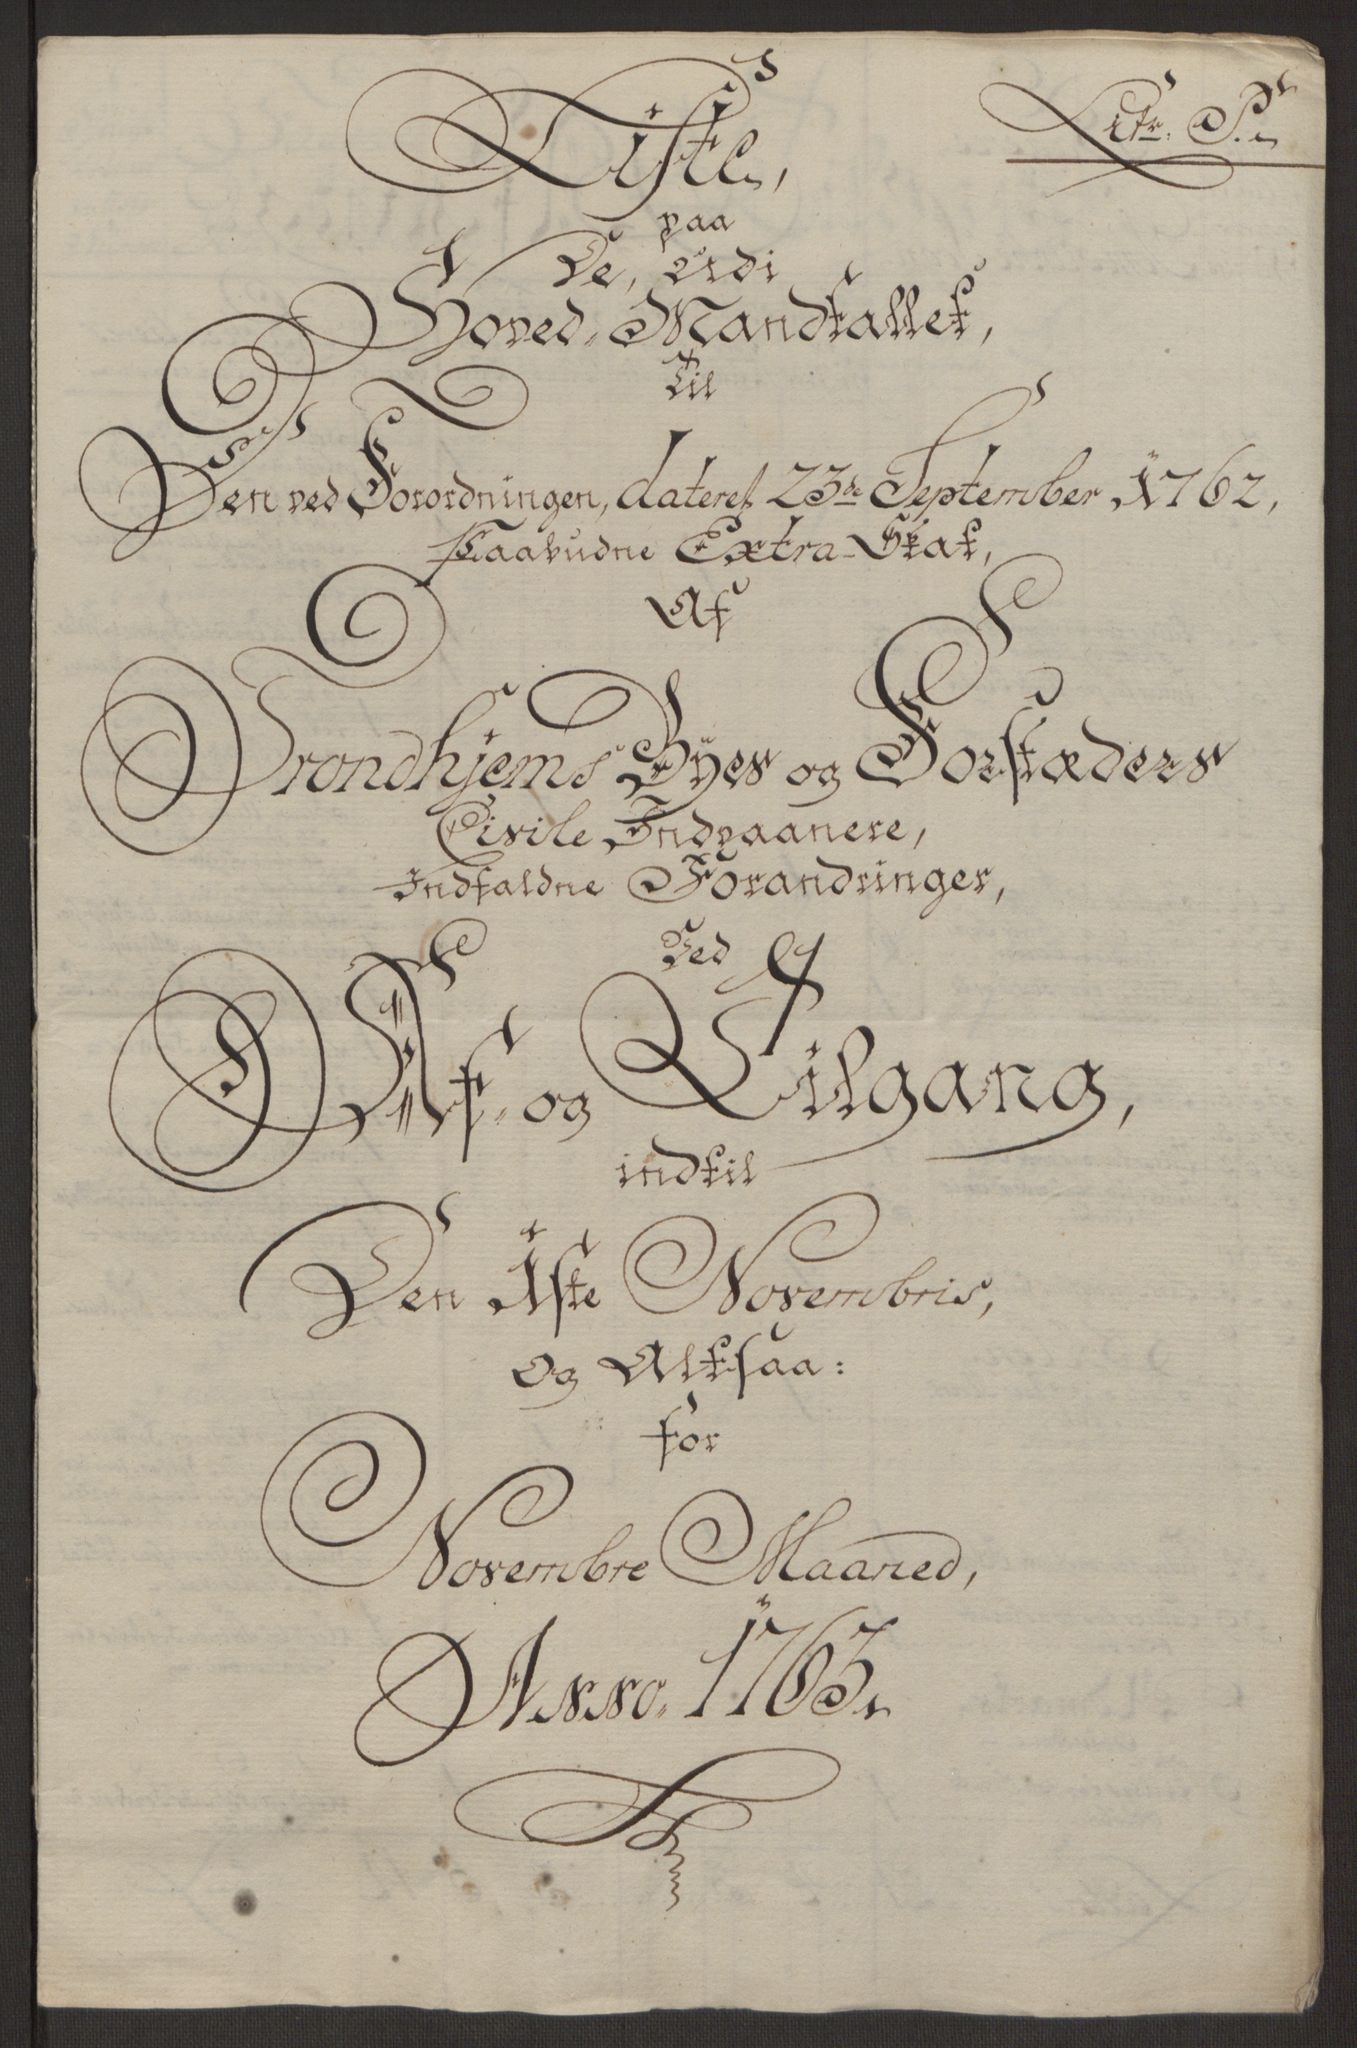 Litr. S.
Liste,
paa
De, udi
Hoved-Mandtallet,
til
Den ved Forordningen, dateret 23de September 1762,
Paabudne Extra-Skat,
Af
Trondhjems Byes og Forstæders
Civile Indvaanere,
Indfaldne Forandringer,
Ved
Af- og Tilgang,
indtil
Den 1ste Novembris,
og Altsaa:
for
Novembre Maaned,
Anno. 1763.